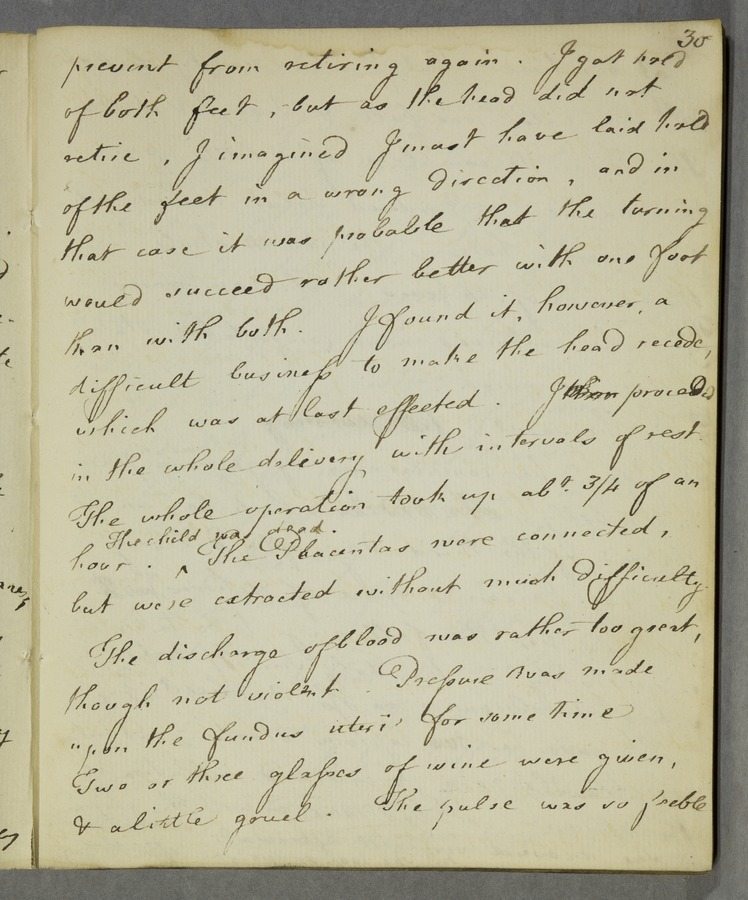 30
prevent from retiring again. I got hold
of both feet, but as the head did not
retire, I imagined I must have laid hold
of the feet in a wrong direction, and in
that case it was probable that the turning
would succeed rather better with one foot
than with both. I found it, however, a
difficult business to make the head recede,
which was at last effected. I proceeded
in the whole delivery with intervals of rest.
The whole operation took up abt. 3/4 of an
The child was dead.
hour. ^ The Placentas were connected,
but were extracted without much difficulty
The discharge of blood was rather too great,
though not violent. Pressure was made
upon the fundus uteri for some time
Two or three glasses of wine were given,
& a little gruel. The pulse was so feeble